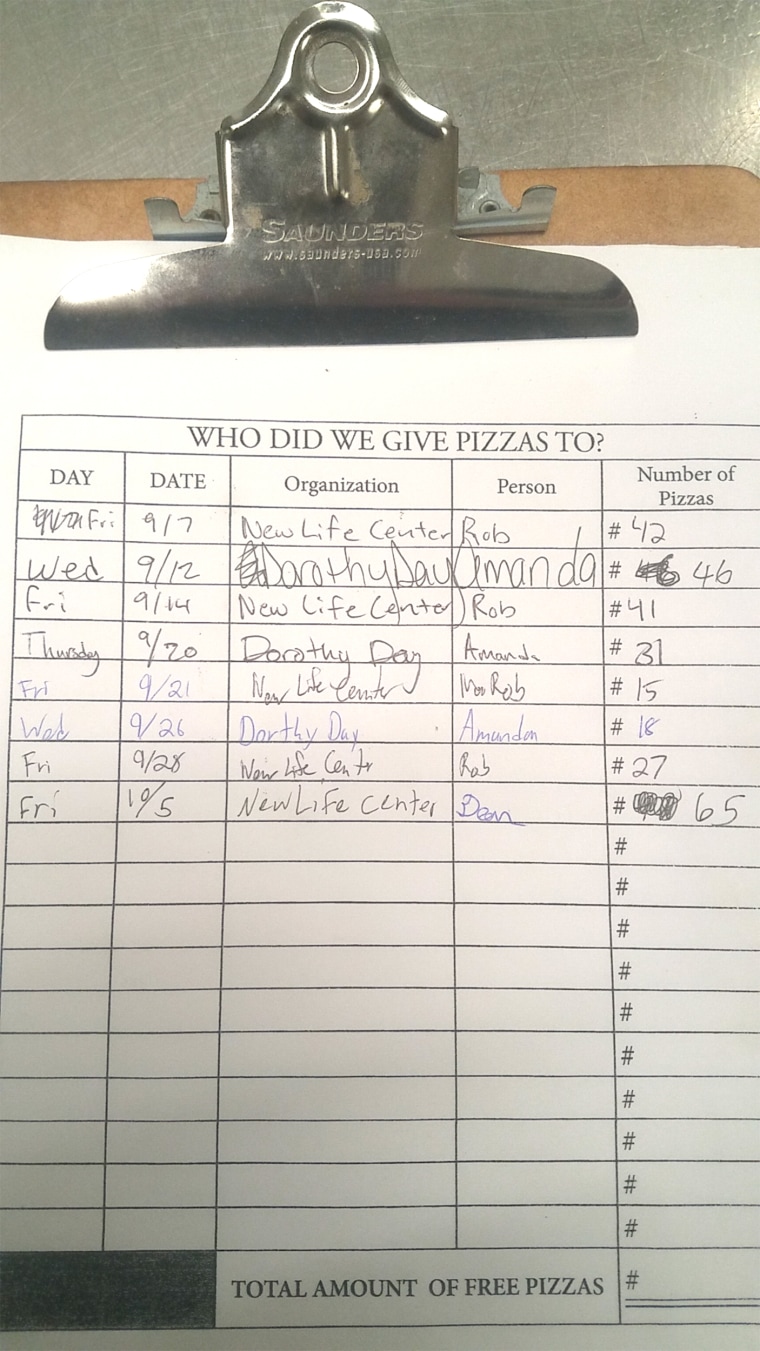 SAUNDERS
www.saunders-usa.com
WHO DID WE GIVE PIZZAS TO?
DAY DATE Organization Person Number of Pizzas
Fri 9/7 New Life Center Rob # 42
Wed 9/12 Dorothy Day Amanda # 46
Fri 9/14 New Life Center Rob # 41
Thursday 9/20 Dorothy Day Amanda # 31
Fri 9/21 New Life Center Rob # 15
Wed 9/26 Dorthy Day Amandan # 18
Fri 9/28 New Life Centr Rob # 27
Fri 10/5 New Life Center Dean # 65
#
#
#
#
#
#
#
#
#
#
TOTAL AMOUNT OF FREE PIZZAS #